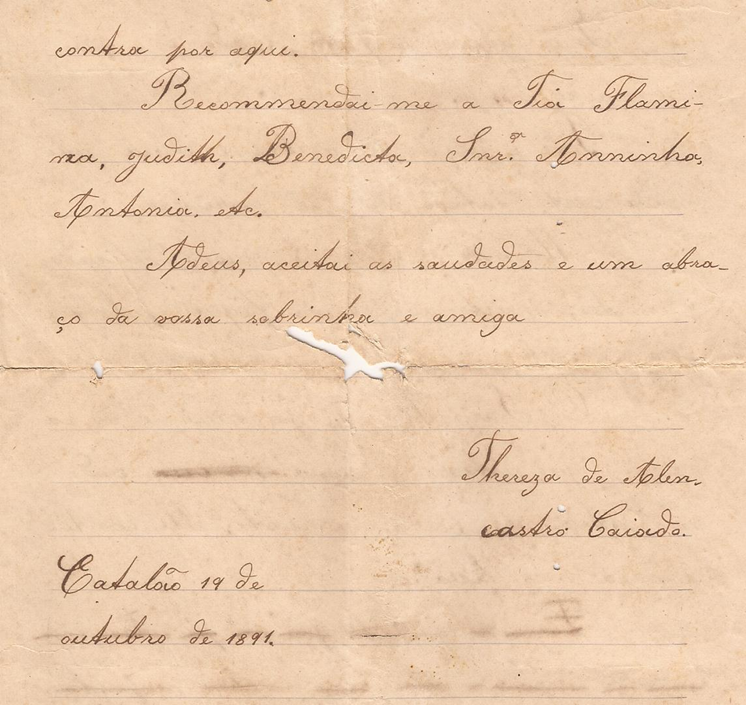 contra por aqui.
Recommendai-me a Tia Flami-
na, Judith, Benedicta, Snr.ª Anninha,
Antonia. etc.
Adeus, aceitai as saudades e um abra-
ço da vossa sobrinha e amiga
Thereza de Alen-
castro Caiado.
Catalão 19 de
outubro de 1891.